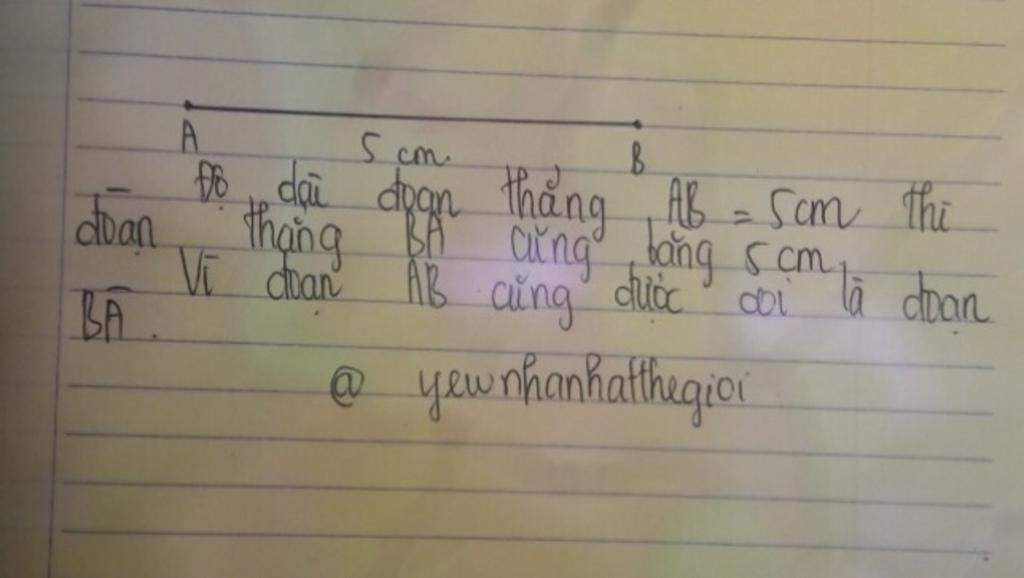 A 5 cm. B
Độ dài đoạn thẳng AB = 5cm thì
đoạn thẳng BA cũng bằng 5 cm.
Vì đoạn AB cũng được coi là đoạn
BA.
@ yewnhanhatthegioi